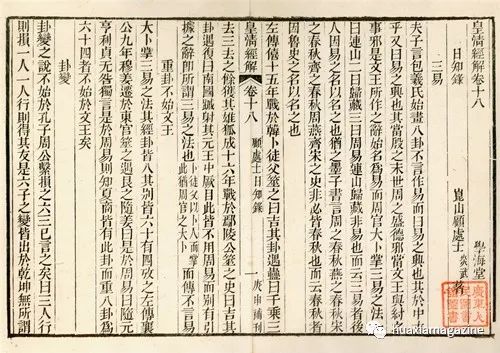 皇清經解卷十八 學海堂
日知錄 崑山顧處士炎武著
三易
夫子言包羲氏始畫八卦不言作易而曰易之興也其於中
乎又曰易之興也其當殷之末世周之盛德邪當文王與紂之
事邪是文王所作之辭始名爲易而周官大卜掌三易之法一
曰連山二曰歸藏三曰周易連山歸藏非易也而云三易者後
人因易之名以名之也猶之墨子書言周之春秋燕之春秋宋
之春秋齊之春秋周燕齊宋之史非必皆春秋也而云春秋者
因魯史之名以名之也
皇清經解 卷十八 顧處士日知錄 一 庚申補刊
左傳僖十五年戰於韓卜徒父筮之曰吉其卦遇蠱曰千乘三
去三去之餘獲其雄狐成十六年戰於鄢陵公筮之史曰吉其
卦遇復曰南國蹙射其元王中厥目此皆不用周易而別有引
據之辭卽所謂三易之法也卜徒父以卜人而掌此猶周官之大卜而傳不言易
重卦不始文王
大卜掌三易之法其經卦皆八其別皆六十有四攷之左傳襄
公九年穆姜遷於東宮筮之遇艮之隨姜曰是於周易曰隨元
亨利貞无咎獨言是於周易則知夏商皆有此卦而重八卦爲
六十四者不始於文王矣
卦變
卦變之說不始於孔子周公繫損之六三已言之矣曰三人行
則損一人一人行則得其友是六子之變皆出於乾坤無所謂
huaxiamagazine